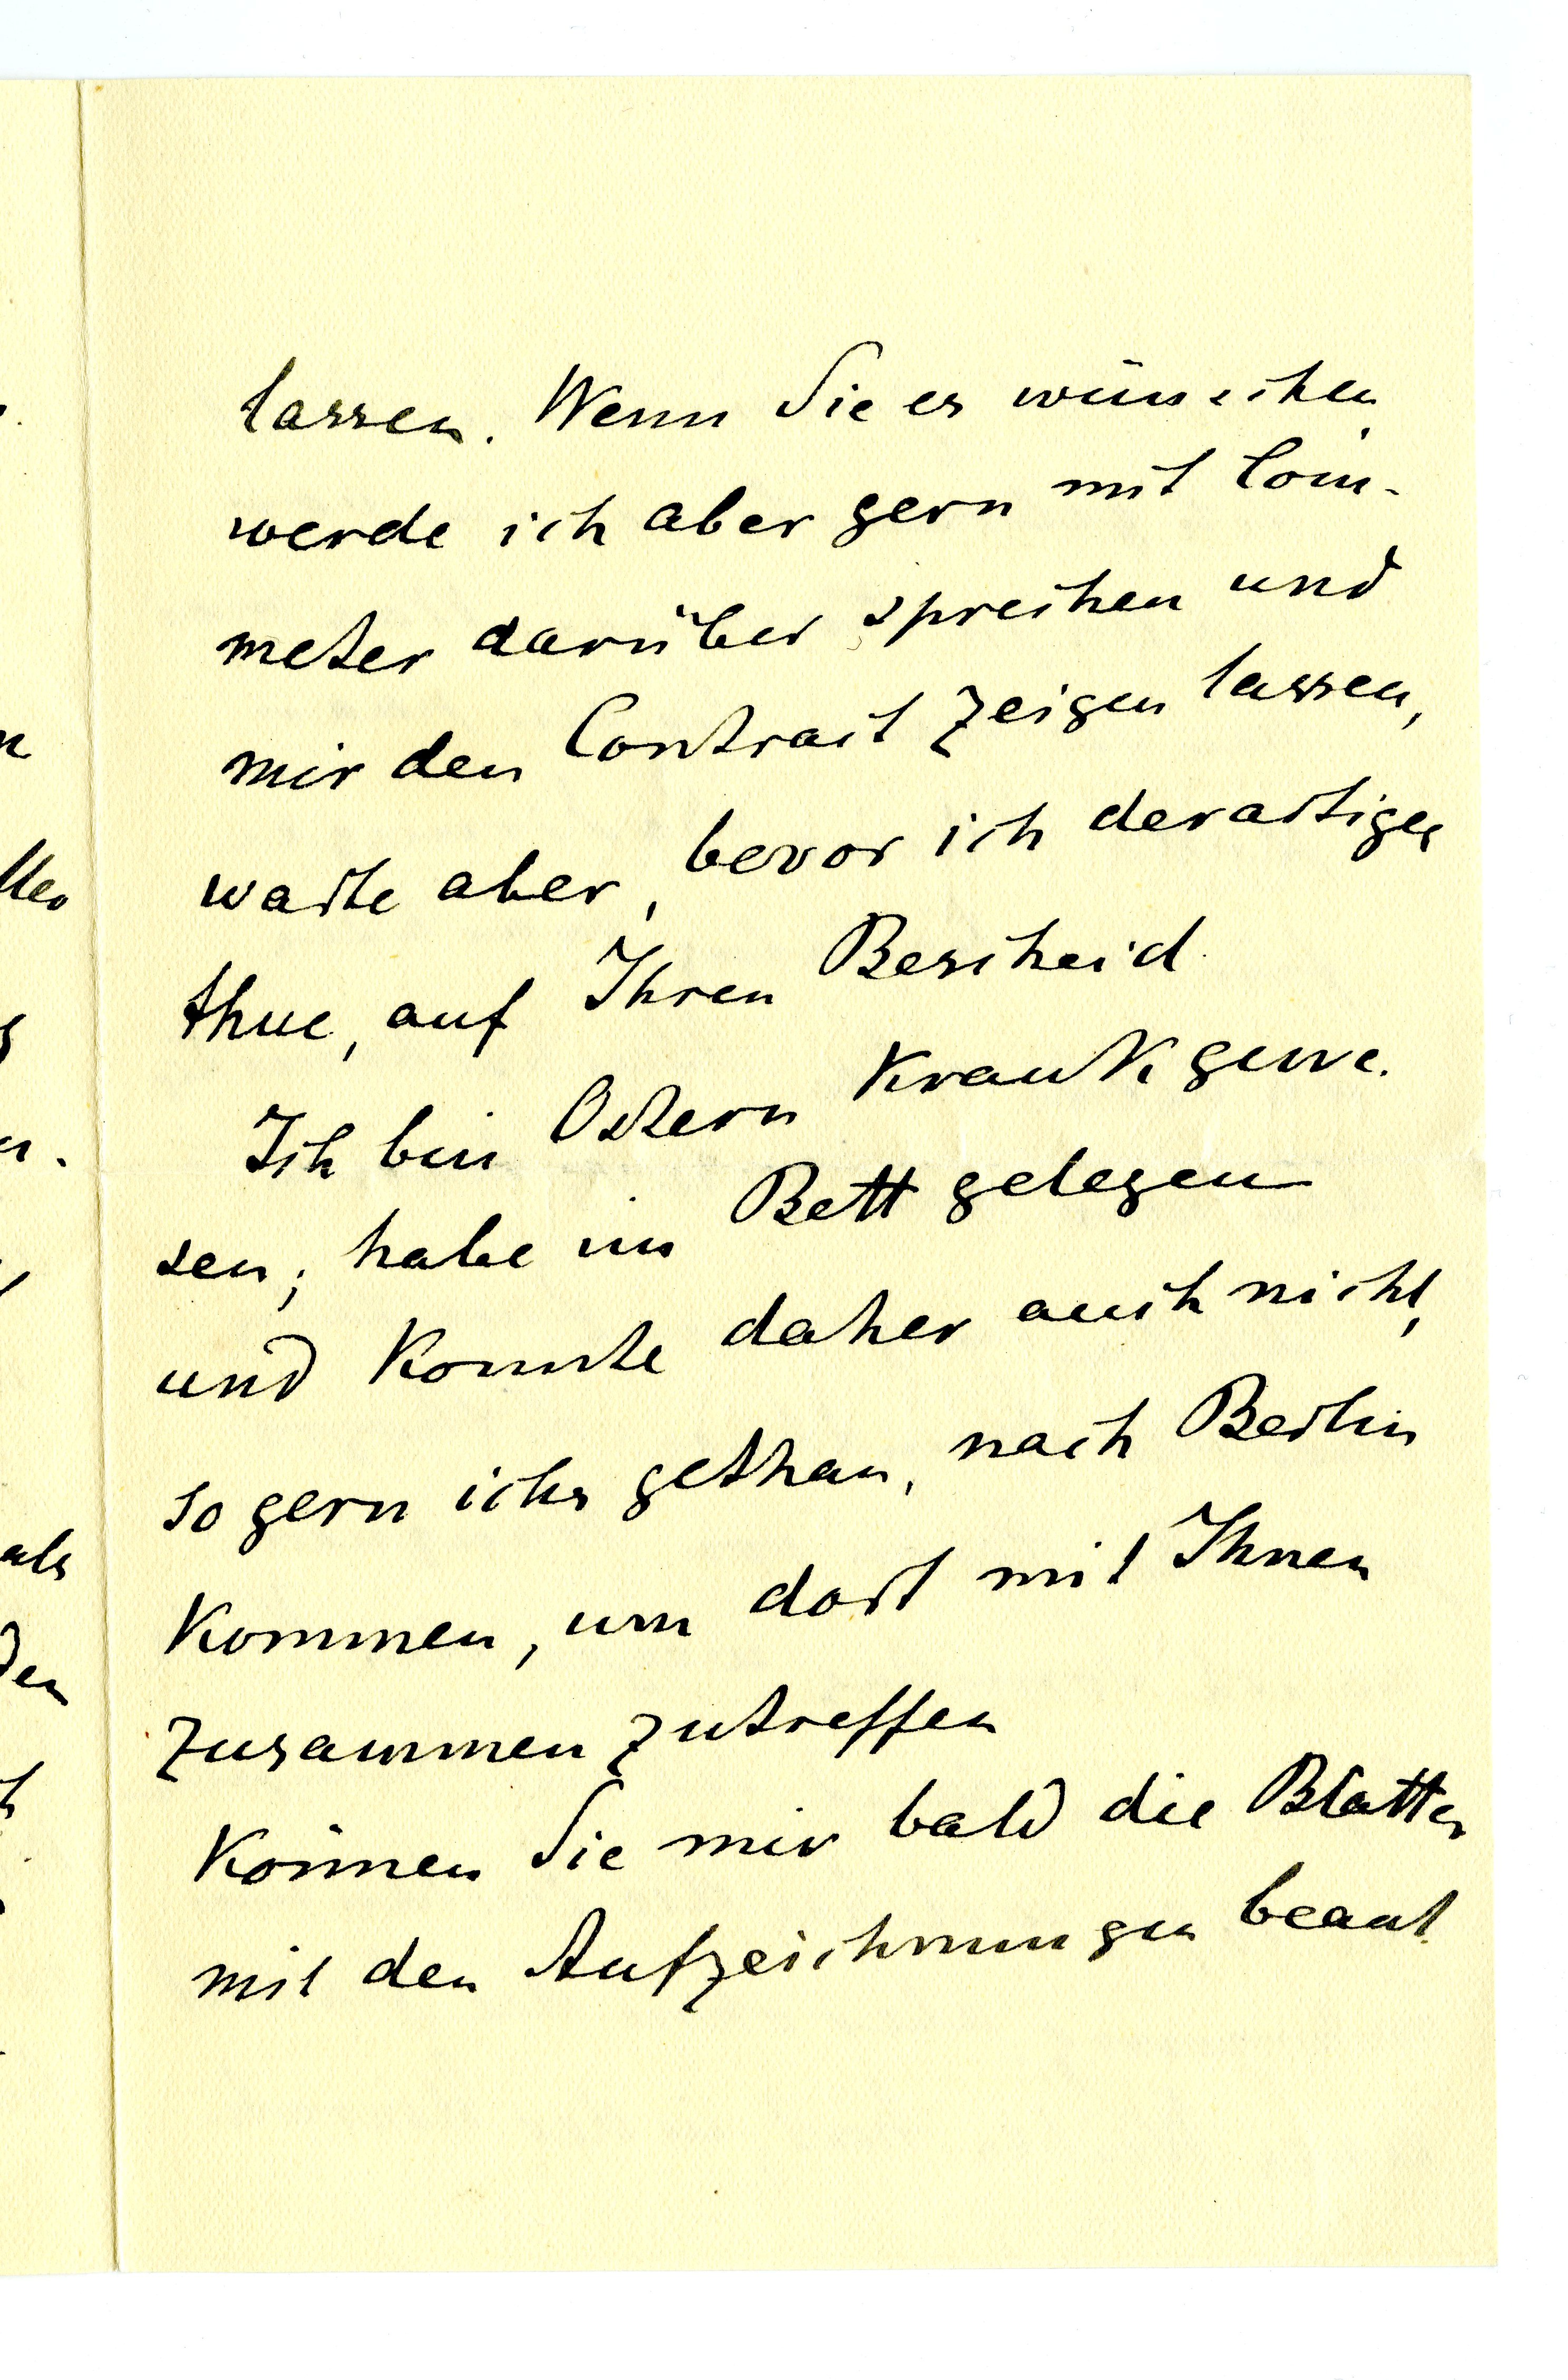 lassen. Wenn Sie es wünschen,
werde ich aber gern mit Com-
meter darüber sprechen und
mir den Contract zeigen lassen,
warte aber, bevor ich derartiges
thue, auf Ihren Bescheid.
Ich bin Ostern krank gewe-
sen; habe im Bett gelegen
und konnte daher auch nicht,
so gern ichs gethan, nach Berlin
kommen, um dort mit Ihnen
zusammen zutreffen
Können Sie mir bald die Blätter
mit den Aufzeichnungen beant
als
den